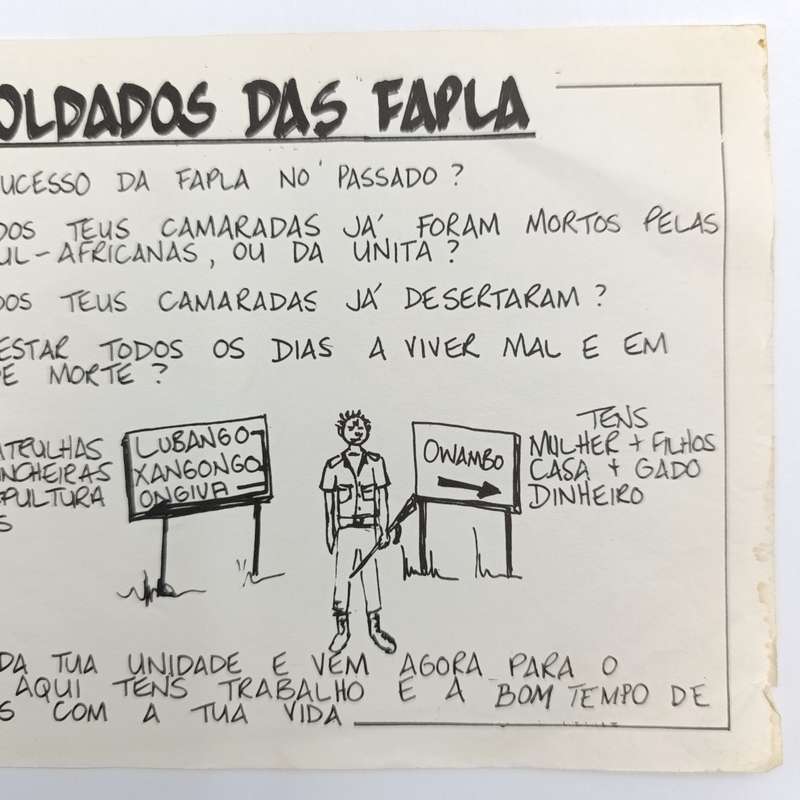 OLDADOS DAS FAPLA
UCESSO DA FAPLA NO PASSADO?
DOS TEUS CAMARADAS JÁ FORAM MORTOS PELAS
UL-AFRICANAS, OU DA UNITA?
DOS TEUS CAMARADAS JÁ DESERTARAM?
ESTAR TODOS OS DIAS A VIVER MAL E EM
E MORTE?
ATRULHAS
NCHEIRAS
EPULTURA
S
LUBANGO
XANGONGO
ONGIVA
OWAMBO
TENS
MULHER + FILHOS
CASA + GADO
DINHEIRO
DA TUA UNIDADE E VEM AGORA PARA O
AQUI TENS TRABALHO E A BOM TEMPO DE
S COM A TUA VIDA